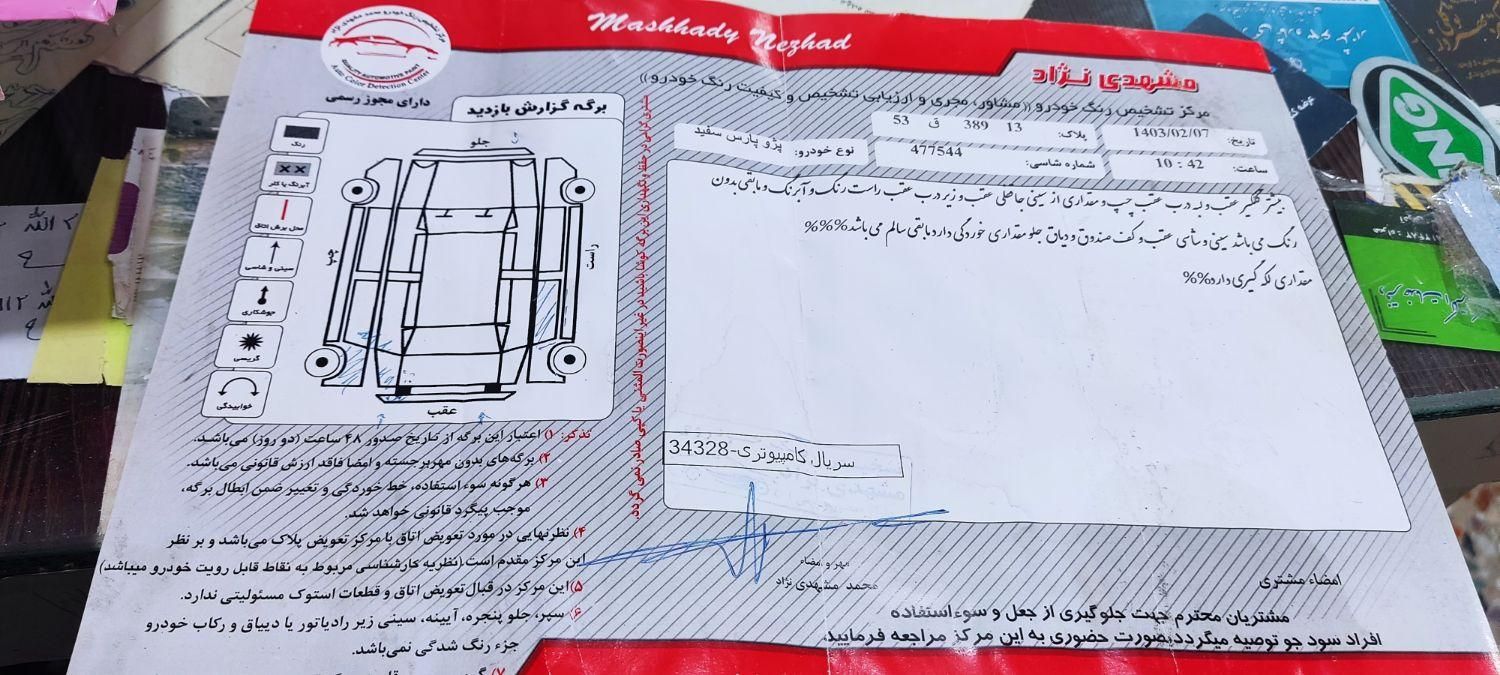 Mashhady Nezhad
مشهدی نژاد
مرکز تشخیص رنگ خودرو ((مشاور، مجری و ارزیابی تشخیص و کیفیت رنگ خودرو))
QUALITY AUTOMOTIVE PAINT
Auto Color Detection Center
دارای مجوز رسمی
برگه گزارش بازدید
تاریخ: 1403/02/07
پلاک: 13 389 ق 53
ساعت: 10 : 42
شماره شاسی: 477544
نوع خودرو: پژو پارس سفید
بیشتر گلگیر عقب و لبه درب عقب چپ و مقداری از سینی جاقفلی عقب و زیر درب عقب راست رنگ و آبرنگ و مابقی بدون
رنگ می باشد سینی و شاسی عقب و کف صندوق و دماق جلو مقداری خوردگی دارد مابقی سالم می باشد%%%
مقداری لکه گیری دارد%%
سریال کامپیوتری-34328
مهر و امضاء
محمد مشهدی نژاد
امضاء مشتری
مشتریان محترم جهت جلوگیری از جعل و سوءاستفاده
افراد سود جو توصیه میگردد بصورت حضوری به این مرکز مراجعه فرمایید.
رنگ
آبرنگ یا کلر
محل برش اتاق
سینی و شاسی
جوشکاری
گریسی
خوابیدگی
جلو
چپ
راست
عقب
مشتری گرامی در حفظ و نگهداری این برگه کوشا باشید در غیر اینصورت المثنی یا کپی صادر نمی گردد.
تذکر: ۱) اعتبار این برگه از تاریخ صدور ۴۸ ساعت (دو روز) می‌باشد.
۲) برگه‌های بدون مهر برجسته و امضا فاقد ارزش قانونی می‌باشد.
۳) هرگونه سوء استفاده، خط خوردگی و تغییر ضمن ابطال برگه،
موجب پیگرد قانونی خواهد شد.
۴) نظر نهایی در مورد تعویض اتاق با مرکز تعویض پلاک می‌باشد و بر نظر
این مرکز مقدم است (نظریه کارشناسی مربوط به نقاط قابل رویت خودرو میباشد)
۵) این مرکز در قبال تعویض اتاق و قطعات استوک مسئولیتی ندارد.
۶) سپر، جلو پنجره، آیینه، سینی زیر رادیاتور یا دیباق و رکاب خودرو
جزء رنگ شدگی نمی‌باشد.
CNG